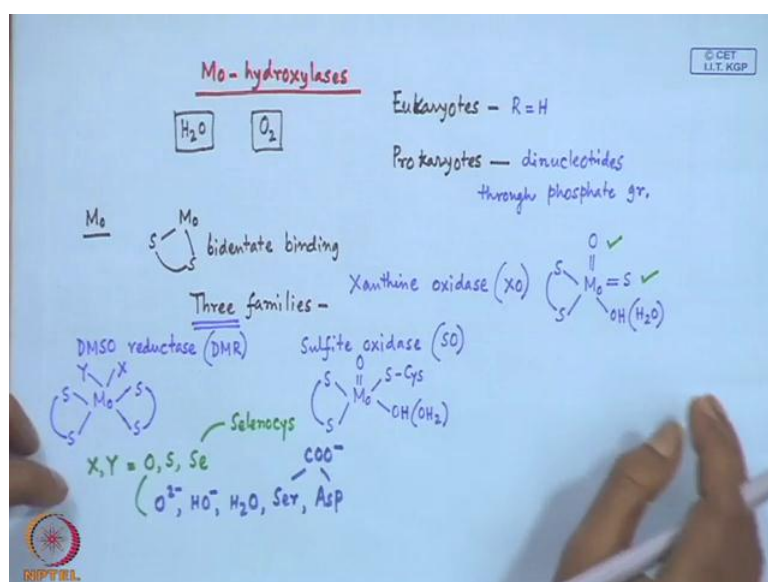 Mo-hydroxylases
© CET
I.I.T. KGP
H₂O O₂
Eukaryotes – R = H
Prokaryotes – dinucleotides
through phosphate gr.
Mo
Mo
S S bidentate binding
Three families –
Xanthine oxidase (XO)
O ✓
S Mo = S ✓
S OH(H₂O)
DMSO reductase (DMR)
Y X
S Mo S
S S
Sulfite oxidase (SO)
O
S Mo S-Cys
S OH(OH₂)
X, Y = O, S, Se
Selenocys
COO⁻
(O²⁻, HO⁻, H₂O, Ser, Asp
NPTEL